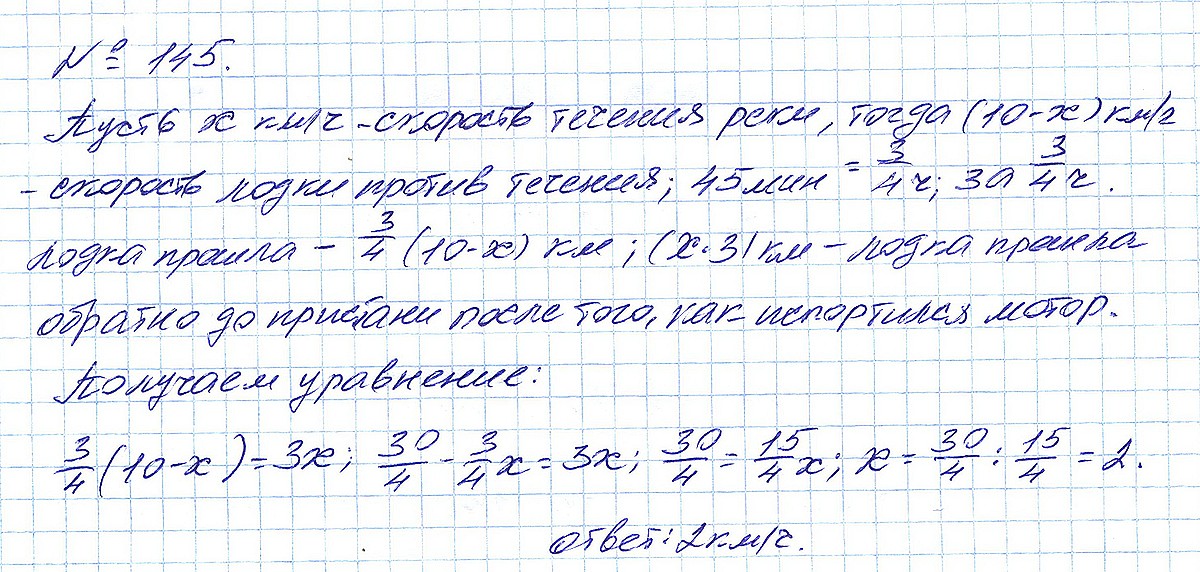 № 145.
Пусть x км/ч - скорость течения реки, тогда (10-x) км/ч
- скорость лодки против течения; 45 мин = 3/4 ч; за 3/4 ч.
лодка прошла - 3/4 (10-x) км; (x·3) км - лодка прошла
обратно до пристани после того, как испортился мотор.
Получаем уравнение:
3/4 (10-x) = 3x; 30/4 - 3/4 x = 3x; 30/4 = 15/4 x; x = 30/4 : 15/4 = 2.
ответ: 2 км/ч.